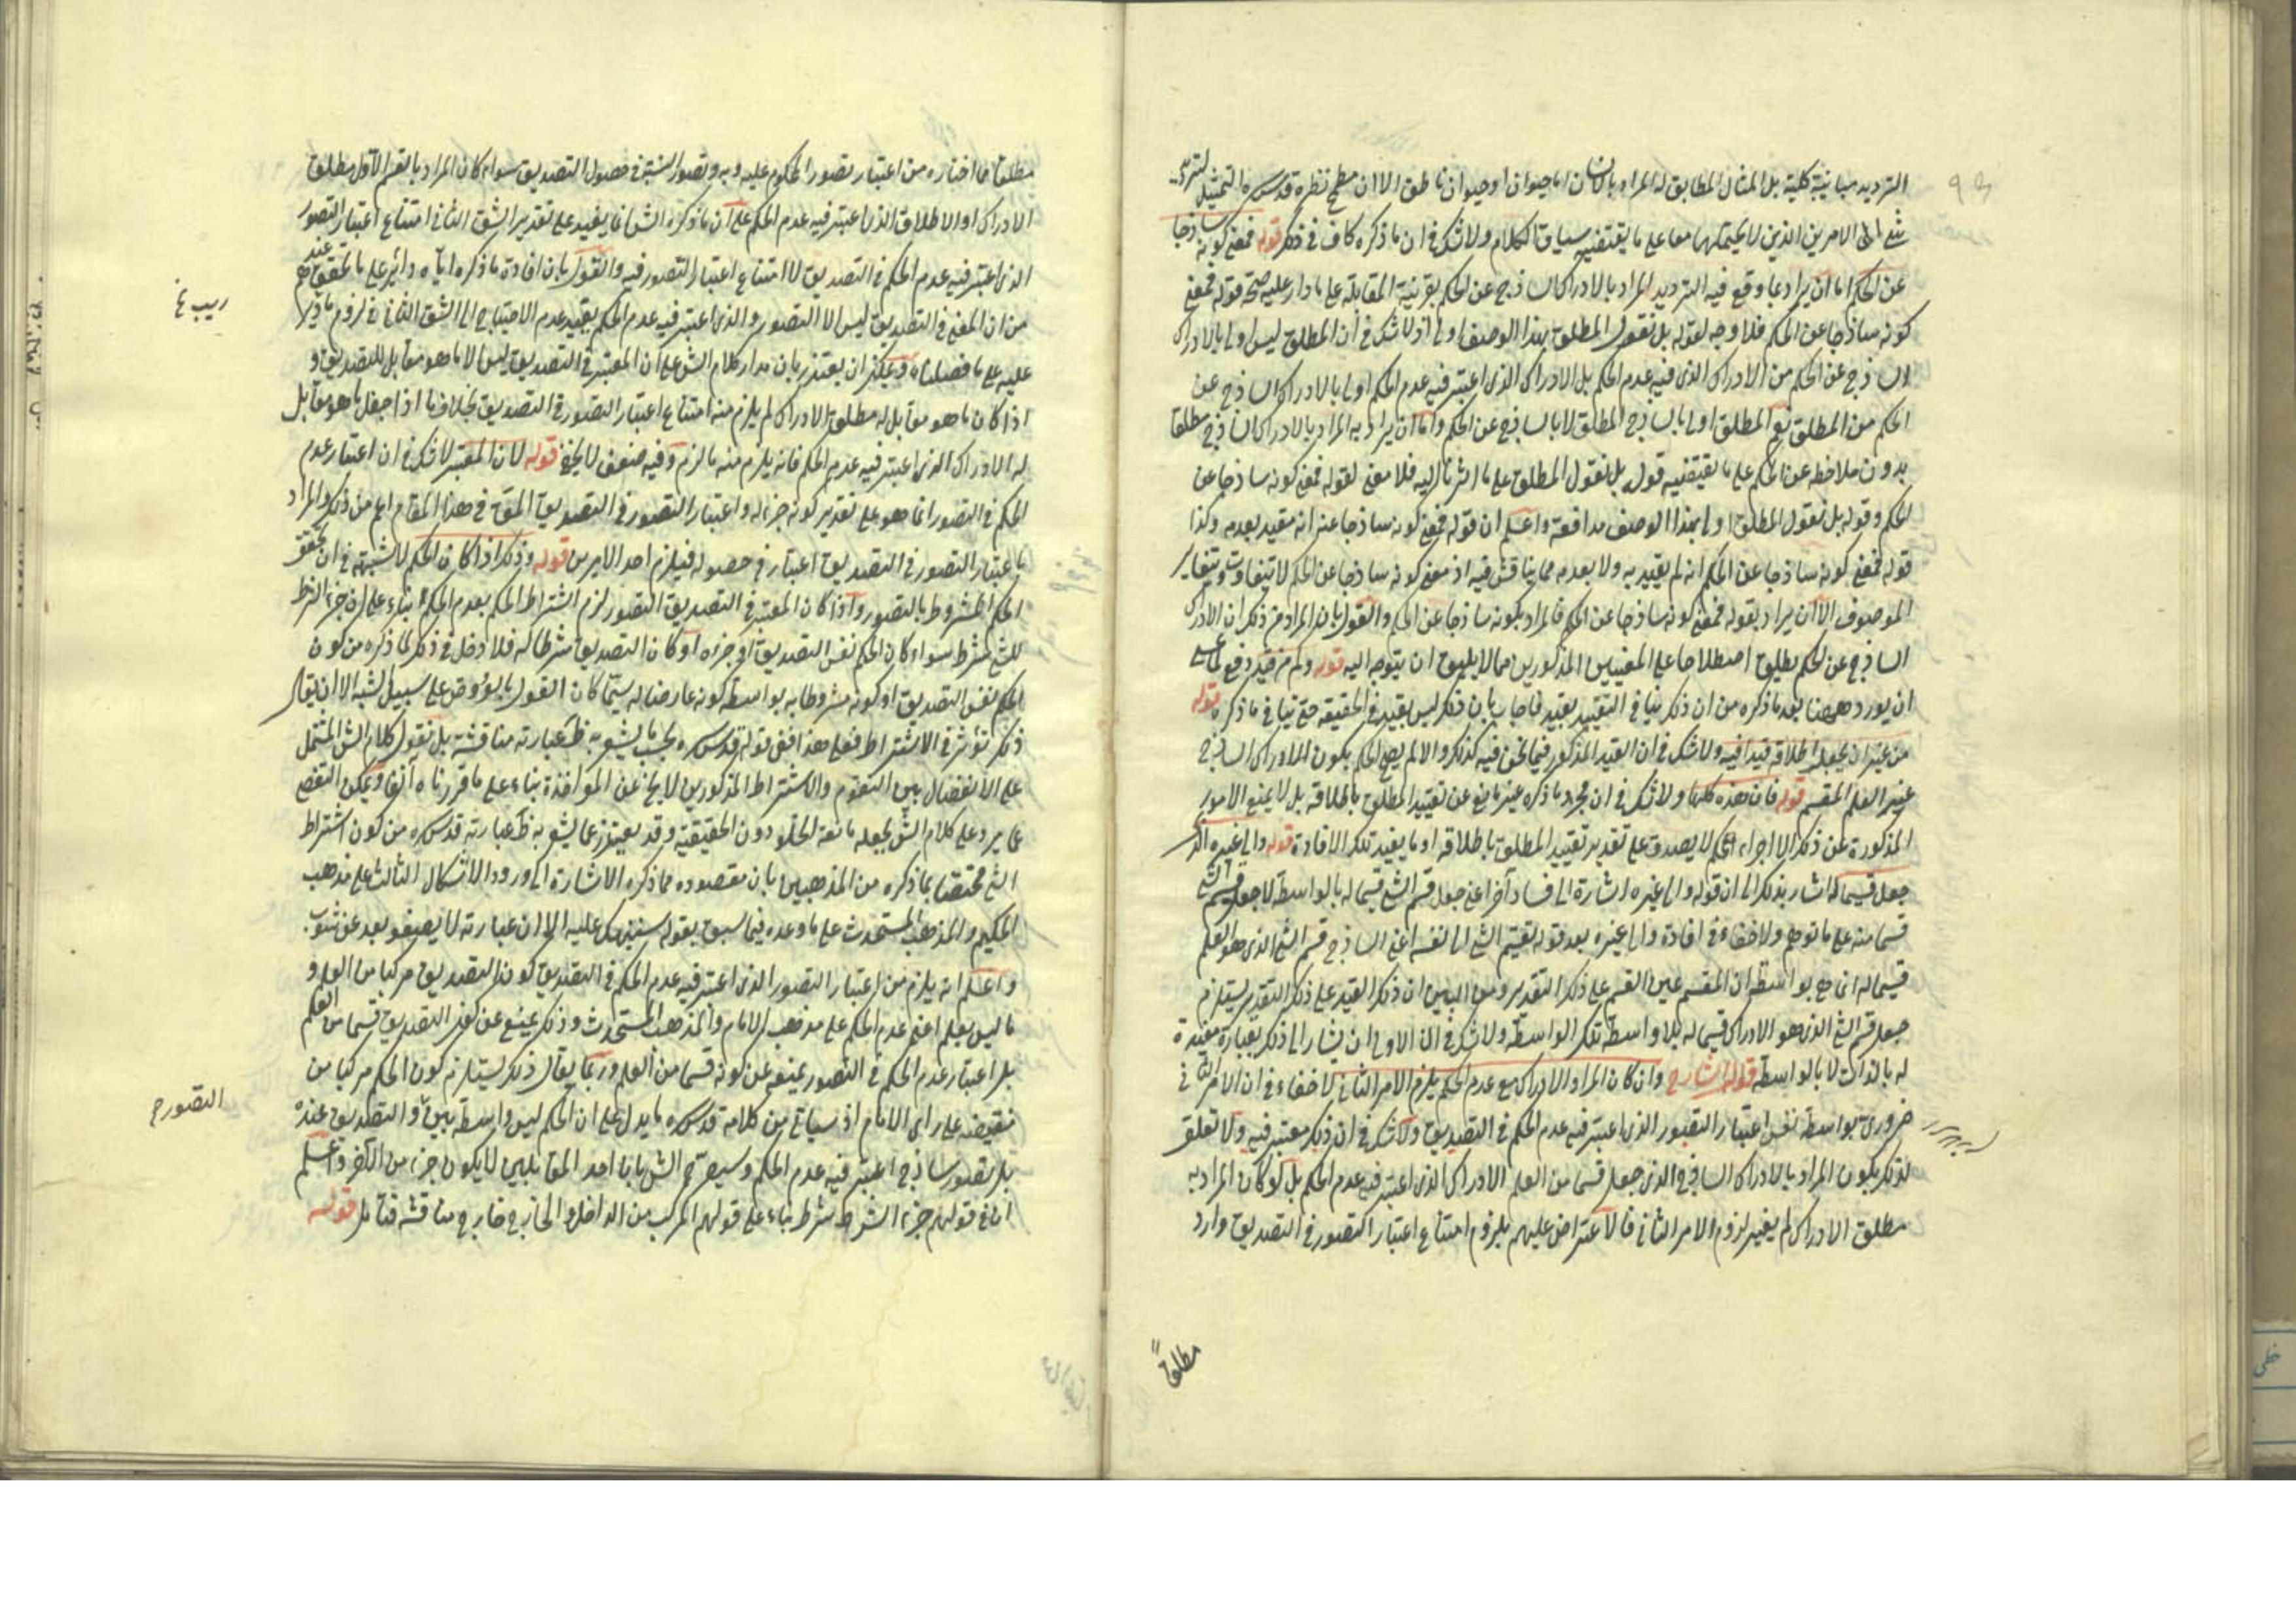 الترديد مباينة كلية بل المثال المطابق له المراد بالانسان اما حيوان او حيوان ناطق الا ان مطمح نظره قدس سره التمثيل لترديد
شئ الى الامرين الذين لا يحتملهما معا على ما يقتضيه سياق الكلام ولا شك فى ان ما ذكره كاف فى ذلك قوله فمعنى كونه ساذجا
عن الحكم اما ان يراد بما وقع فيه الترديد المراد بالادراك الساذج عن الحكم بقرينة المقابلة على ما دار عليه صحة قوله فمعنى
كونه ساذجا عن الحكم فلا وجه لقوله بل نقول المطلق بهذا الوصف اولى اذ لا شك فى ان المطلق ليس اولى بالادراك
الساذج عن الحكم من الادراك الذى فيه عدم الحكم بل الادراك الذى اعتبر فيه عدم الحكم اولى بالادراك الساذج عن
الحكم من المطلق نعم المطلق اولى بالساذج المطلق لا بالساذج عن الحكم واما ان يراد به المراد بالادراك الساذج مطلقا
بدون ملاحظة عن الحكم على ما يقتضيه قوله بل نقول المطلق على ما اشرنا اليه فلا معنى لقوله فمعنى كونه ساذجا عن
الحكم وقوله بل نقول المطلق اولى بهذا الوصف مدافعة واعلم ان قوله فمعنى كونه ساذجا عنه انه مقيد بعدمه وكذا
قوله فمعنى كونه ساذجا عن الحكم انه لم يقيد به ولا بعدمه مما يناقش فيه اذ معنى كونه ساذجا عن الحكم لا يتفاوت بتغاير
الموصوف الا ان يراد بقوله فمعنى كونه ساذجا عن الحكم فالمراد بكونه ساذجا عن الحكم والقول بان المراد من ذلك ان الادراك
الساذج عن الحكم يطلق اصطلاحا على المعنيين المذكورين مما لا يليق ان يتوجه اليه قوله ولم من قيد دفع لما عسى
ان يورد ههنا بعد ما ذكره من ان ذلك ينافى التقييد بقيد فاجاب بان ذلك ليس بقيد فى الحقيقة حتى ينافى ما ذكره قوله
من غير ان يجعل اطلاقه قيدا فيه ولا شك فى ان القيد المذكور فيما نحن فيه كذلك والا لم يصح الحكم بكون الادراك الساذج
غير العلم المقسم قوله فان هذه كلها ولا شك فى ان مجرد ما ذكره غير مانع عن تقييد المطلق باطلاقه بل لا يمنع الامور
المذكورة عن ذلك الا اجراء الحكم لا يصدق على تقدير تقييد المطلق باطلاقه او ما يفيد تلك الافادة قوله والى غيره الذى
جعل قسيما له اشار بذلك الى ان قوله والى غيره اشارة الى فساد آخر اعنى جعل قسم الشئ قسيما له بالواسطة لا جعل قسيم الشئ
قسما منه على ما توهم ولا خفاء فى افادة والى غيره بعد قوله تقسيم الشئ الى نفسه اعنى الساذج قسم الشئ الذى هو العلم
قسيما له انما هو بواسطة ان المقسم عين القسم على ذلك التقدير ومن البين ان ذكر القيد على ذلك التقدير يستلزم
جعل قسم الشئ الذى هو الادراك قسيما له بلا واسطة تلك الواسطة ولا شك فى ان الاولى ان يشار الى ذلك بعبارة مفيدة
له بالذات لا بالواسطة قوله الشارح وان كان المراد الادراك مع عدم الحكم يلزم الامر الثانى لا خفاء فى ان الامر الثانى
ضرورى بواسطة نفس اعتبار التصور الذى اعتبر فيه عدم الحكم فى التصديق ولا شك فى ان ذلك معتبر فيه ولا تعلق
لذلك بكون المراد بالادراك الساذج الذى جعل قسما من العلم الادراك الذى اعتبر فيه عدم الحكم بل لو كان المراد به
مطلق الادراك لم يغير لزوم الامر الثانى فالاعتراض عليهم بلزوم امتناع اعتبار التصور فى التصديق وارد
مطلقا
مطلقا ما اختاره من اعتبار تصور المحكوم عليه وبه وتصور النسبة فى حصول التصديق سواء كان المراد بالقسم الاول مطلق
الادراك او الاطلاق الذى اعتبر فيه عدم الحكم على ان ما ذكره الش انما يفيد على تقدير الشق الثانى امتناع اعتبار التصور
الذى اعتبر فيه عدم الحكم فى التصديق لا امتناع اعتبار التصور فيه والقول بان افادة ما ذكره اياه دائر على ما تحقق عندهم
من ان المعتبر فى التصديق ليس الا التصور والذى اعتبر فيه عدم الحكم يفيد عدم الاحتياج الى الشق الثانى فى لزوم ما ذكر
ريب فى
عليه على ما فصلناه ويمكن ان يعتذر بان مدار كلام الش على ان المعتبر فى التصديق ليس الا ما هو مقابل للتصديق و
اذا كان ما هو مقابل له مطلق الادراك لم يلزم منه امتناع اعتبار التصور فى التصديق بخلاف ما اذا جعل ما هو مقابل
له الادراك الذى اعتبر فيه عدم الحكم فانه يلزم منه ما لزم وفيه ضعف لا يخفى قوله لان المعتبر لا شك فى ان اعتبار عدم
الحكم فى التصور انما هو على تقدير كونه جزءا له واعتبار التصور فى التصديق المق فى هذا المقام اعم من ذلك والمراد
باعتبار التصور فى التصديق اعتباره فى حصوله فيلزم احد الامرين قوله وذلك اذا كان الحكم لا شبهة فى ان تحقق
الحكم المشروط بالتصور واذا كان المعتبر فى التصديق التصور لزم اشتراط الحكم بعدم الحكم بناء على ان جزء الشرط
للشئ شرط سواء كان الحكم نفس التصديق او جزءه او كان التصديق شرطا له فلا دخل فى ذلك لما ذكره من كون
الحكم نفس التصديق او كونه مشروطا به بواسطة كونه عارضا له سيما كان القول بالعروض على سبيل الشبه الا ان يقال
ذلك يؤثر فى الاشتراط فعلى هذا ففى قوله قدس سره بحسب ما يشعر به ظ عبارته مناقشة بل نقول كلام الش المشتمل
على الانفصال بين التقوم والاشتراط المذكورين لا يخ عن المؤاخذة بناء على ما قررناه آنفا ويمكن التفصى
عما يرد على كلام الش بجعله مانعة الخلو دون الحقيقية وقد يعتذر عما يشعر به ظ عبارته قدس سره من كون اشتراط
الشئ مختصا بما ذكره من المذهبين بان مقصوده مما ذكره الاشارة الى ورود الاشكال الثالث على مذهب
الحكيم والمذهب المستحدث على ما وعده فيما سبق بقوله سننبهك عليه الا ان عبارته لا يصفو بعد عن شوب
واعلم انه يلزم من اعتبار التصور الذى اعتبر فيه عدم الحكم فى التصديق كون التصديق مركبا من العلم و
ما ليس بعلم اعنى عدم الحكم على مذهب الامام والمذهب المستحدث وذلك يمنع عن كون التصديق قسما من العلم
بل اعتبار عدم الحكم فى التصور يمنعه عن كونه قسما من العلم وربما يقال ذلك يستلزم كون الحكم مركبا من
نقيضه على راى الامام اذ سياتى من كلامه قدس سره ما يدل على ان الحكم ليس واسطة بين و التصديق عنده
التصور
بل تصور ساذج اعتبر فيه عدم الحكم وسيصرح الش بان احد المتقابلين لا يكون جزءا من الآخر واعلم
ان فى قولهم جزء الشرط شرط بناء على قولهم المركب من الداخل والخارج خارج مناقشة فتامل قوله